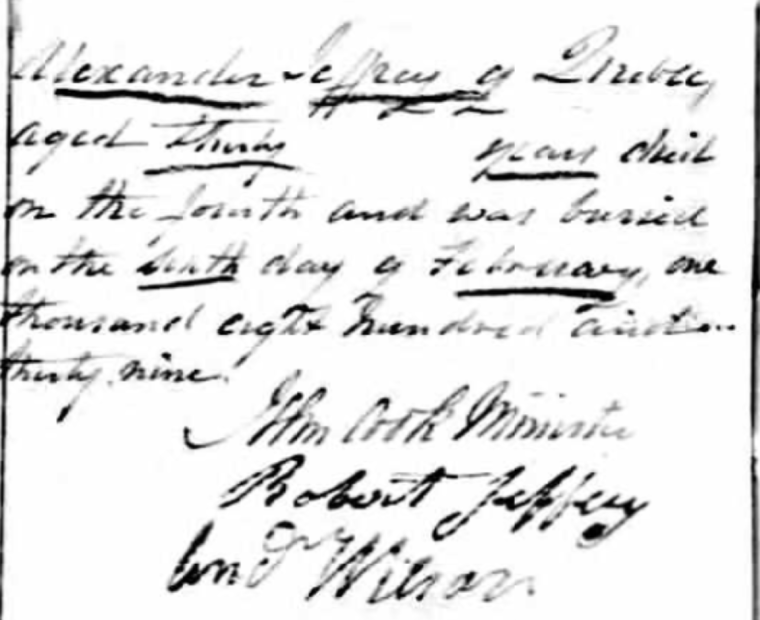 Alexander Jeffrey of Quebec,
aged thirty years died
on the fourth and was buried
on the sixth day of February, one
thousand eight hundred and
thirty nine.
John Cook Minister
Robert Jeffery
And<sup>w</sup> Wilson.